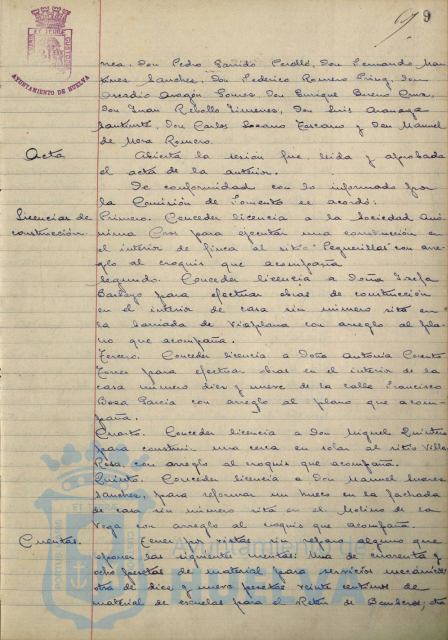 9
AYUNTAMIENTO DE HUELVA
nea, Don Pedro Garrido Perelló, Don Fernando Mar
tinez Sanchez, Don Federico Romero Don
Arcadio Aragón Gomez, Don Enrique Bueno Cruz,
Don Juan Rebollo Jimenez, Don Luis
Don Carlos Lozano y Don Manuel
de Mora Romero.
Acta
Abierta la sesion fue leida y aprobada
el acta de la anterior.
De conformidad con lo informado por
la Comisión de Fomento se acordó:
Licencias de
construcción.
Primero. Conceder licencia a la Sociedad Anó
nima para ejecutar una construcción en
el interior de finca al sitio "Peguerillas" con arre
glo al croquis que acompaña
Segundo. Conceder licencia a Doña Josefa
para efectuar obras de construcción
en el interior de casa sin número sita en
la barriada de Viaplana con arreglo al pla
no que acompaña.
Tercero. Conceder licencia a Doña Antonia
Torres para efectuar obras en el interior de la
casa número diez y nueve de la calle Francisco
Boza Garcia con arreglo al plano que acom-
paña.
Cuarto. Conceder licencia a Don Miguel Quintero
para construir una cerca en solar al sitio Villa
Rosa, con arreglo al croquis que acompaña.
Quinto. Conceder licencia a Don Manuel Suarez
Sanchez, para reformar un hueco en la fachada
de casa sin número sita en el Molino de la
Vega con arreglo al croquis que acompaña.
Cuentas.
Tener por vistas sin reparo alguno que
oponer las siguientes cuentas: Una de cuarenta y
ocho pesetas de material para servicios mecánicos
otra de diez y nueve pesetas veinte centimos de
material de escuelas para el Retén de Bomberos, otra